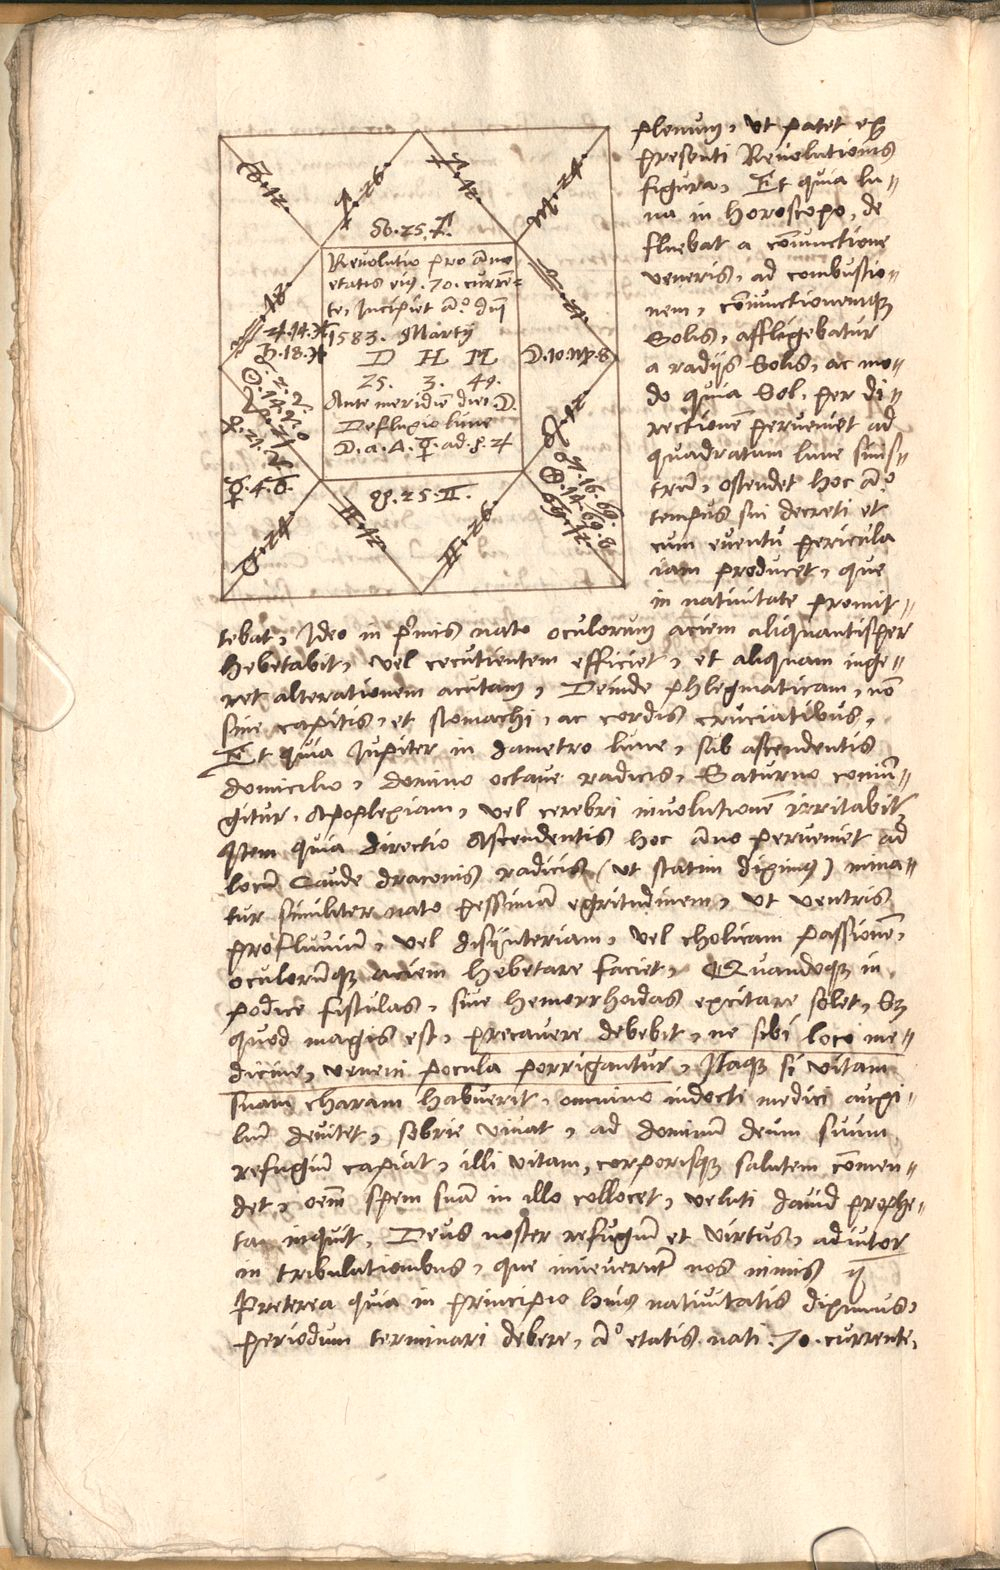 Revolutio pro año
etatis eiꝰ .70. curren̄=
te, Incipiet añ.º dñj
1583. Martij
D H M
25. 3. 49.
Ante meridiē diei ☽.
Defluxio lune
☽.a.△.♀.ad.☍.♃
♋.25.♐.
☽.10.♍.8
♉.25.♊.
♀.4.♉.
♃.14.♓
♄.18.♓
plenum, ut patet ex
presenti Revolutionis
figura, Et quia lu=
na in horoscopo, de
fluebat a coniunctione
veneris, ad combustio=
nem, coniunctionemqꝫ
Solis, affligebatur
a radijs Solis, ac mo=
do quia Sol, per di=
rectionē perveniet ad
quadratum lune sinis=
trū, ostendet hoc añ.º
tempus sui decreti et
cum eventū pericula
iam producet, que
in nativitate promit=
tebat, Ideo in primis nato oculorum aciem aliquantisper
hebetabit, vel cecutientem efficiet, et aliquam inge=
ret alterationem acutam, Deinde phlegmaticam, nō
sine capitis, et stomachi, ac cordis cruciatibus,
Et quia Jupiter in dametro lune, sub ascendentis
domicilio, domino octave radicis, Saturno coniun=
gitur, Apoplexiam, vel cerebri involutionē irritabit,
Item quia directio Ascendentis hoc año perveniet ad
locū Caude draconis radicis (ut statim diximꝰ) mina=
tur similiter nato pessimā egritudinem, ut ventris
profluviū, vel disijnteriam, vel cholicam passionē,
oculorūqꝫ aciem hebetare faciet, Quandoqꝫ in
podice fistulas, sive hemorrhoidas excitare solet, Sꝫ
quod magis est, precavere debebit, ne sibi loco me=
dicine, veneni pocula porrigantur, Itaqꝫ si vitam
suam charam habuerit, omnino indocti medici auxi=
liū devitet, sobrie vivat, ad dominū deum suum
refugiū capiat, illi vitam, corporisqꝫ salutem cōmen=
det, oem̄ spem suā in illo collocet, veluti david prophe=
ta inquit, Deus noster refugiū et virtus, adiutor
in tribulationibus, que invenerunt nos nimis
Preterea quia in principio huiꝰ nativitatis diximus,
periodum terminari debere, añº etatis nati .70. currente,